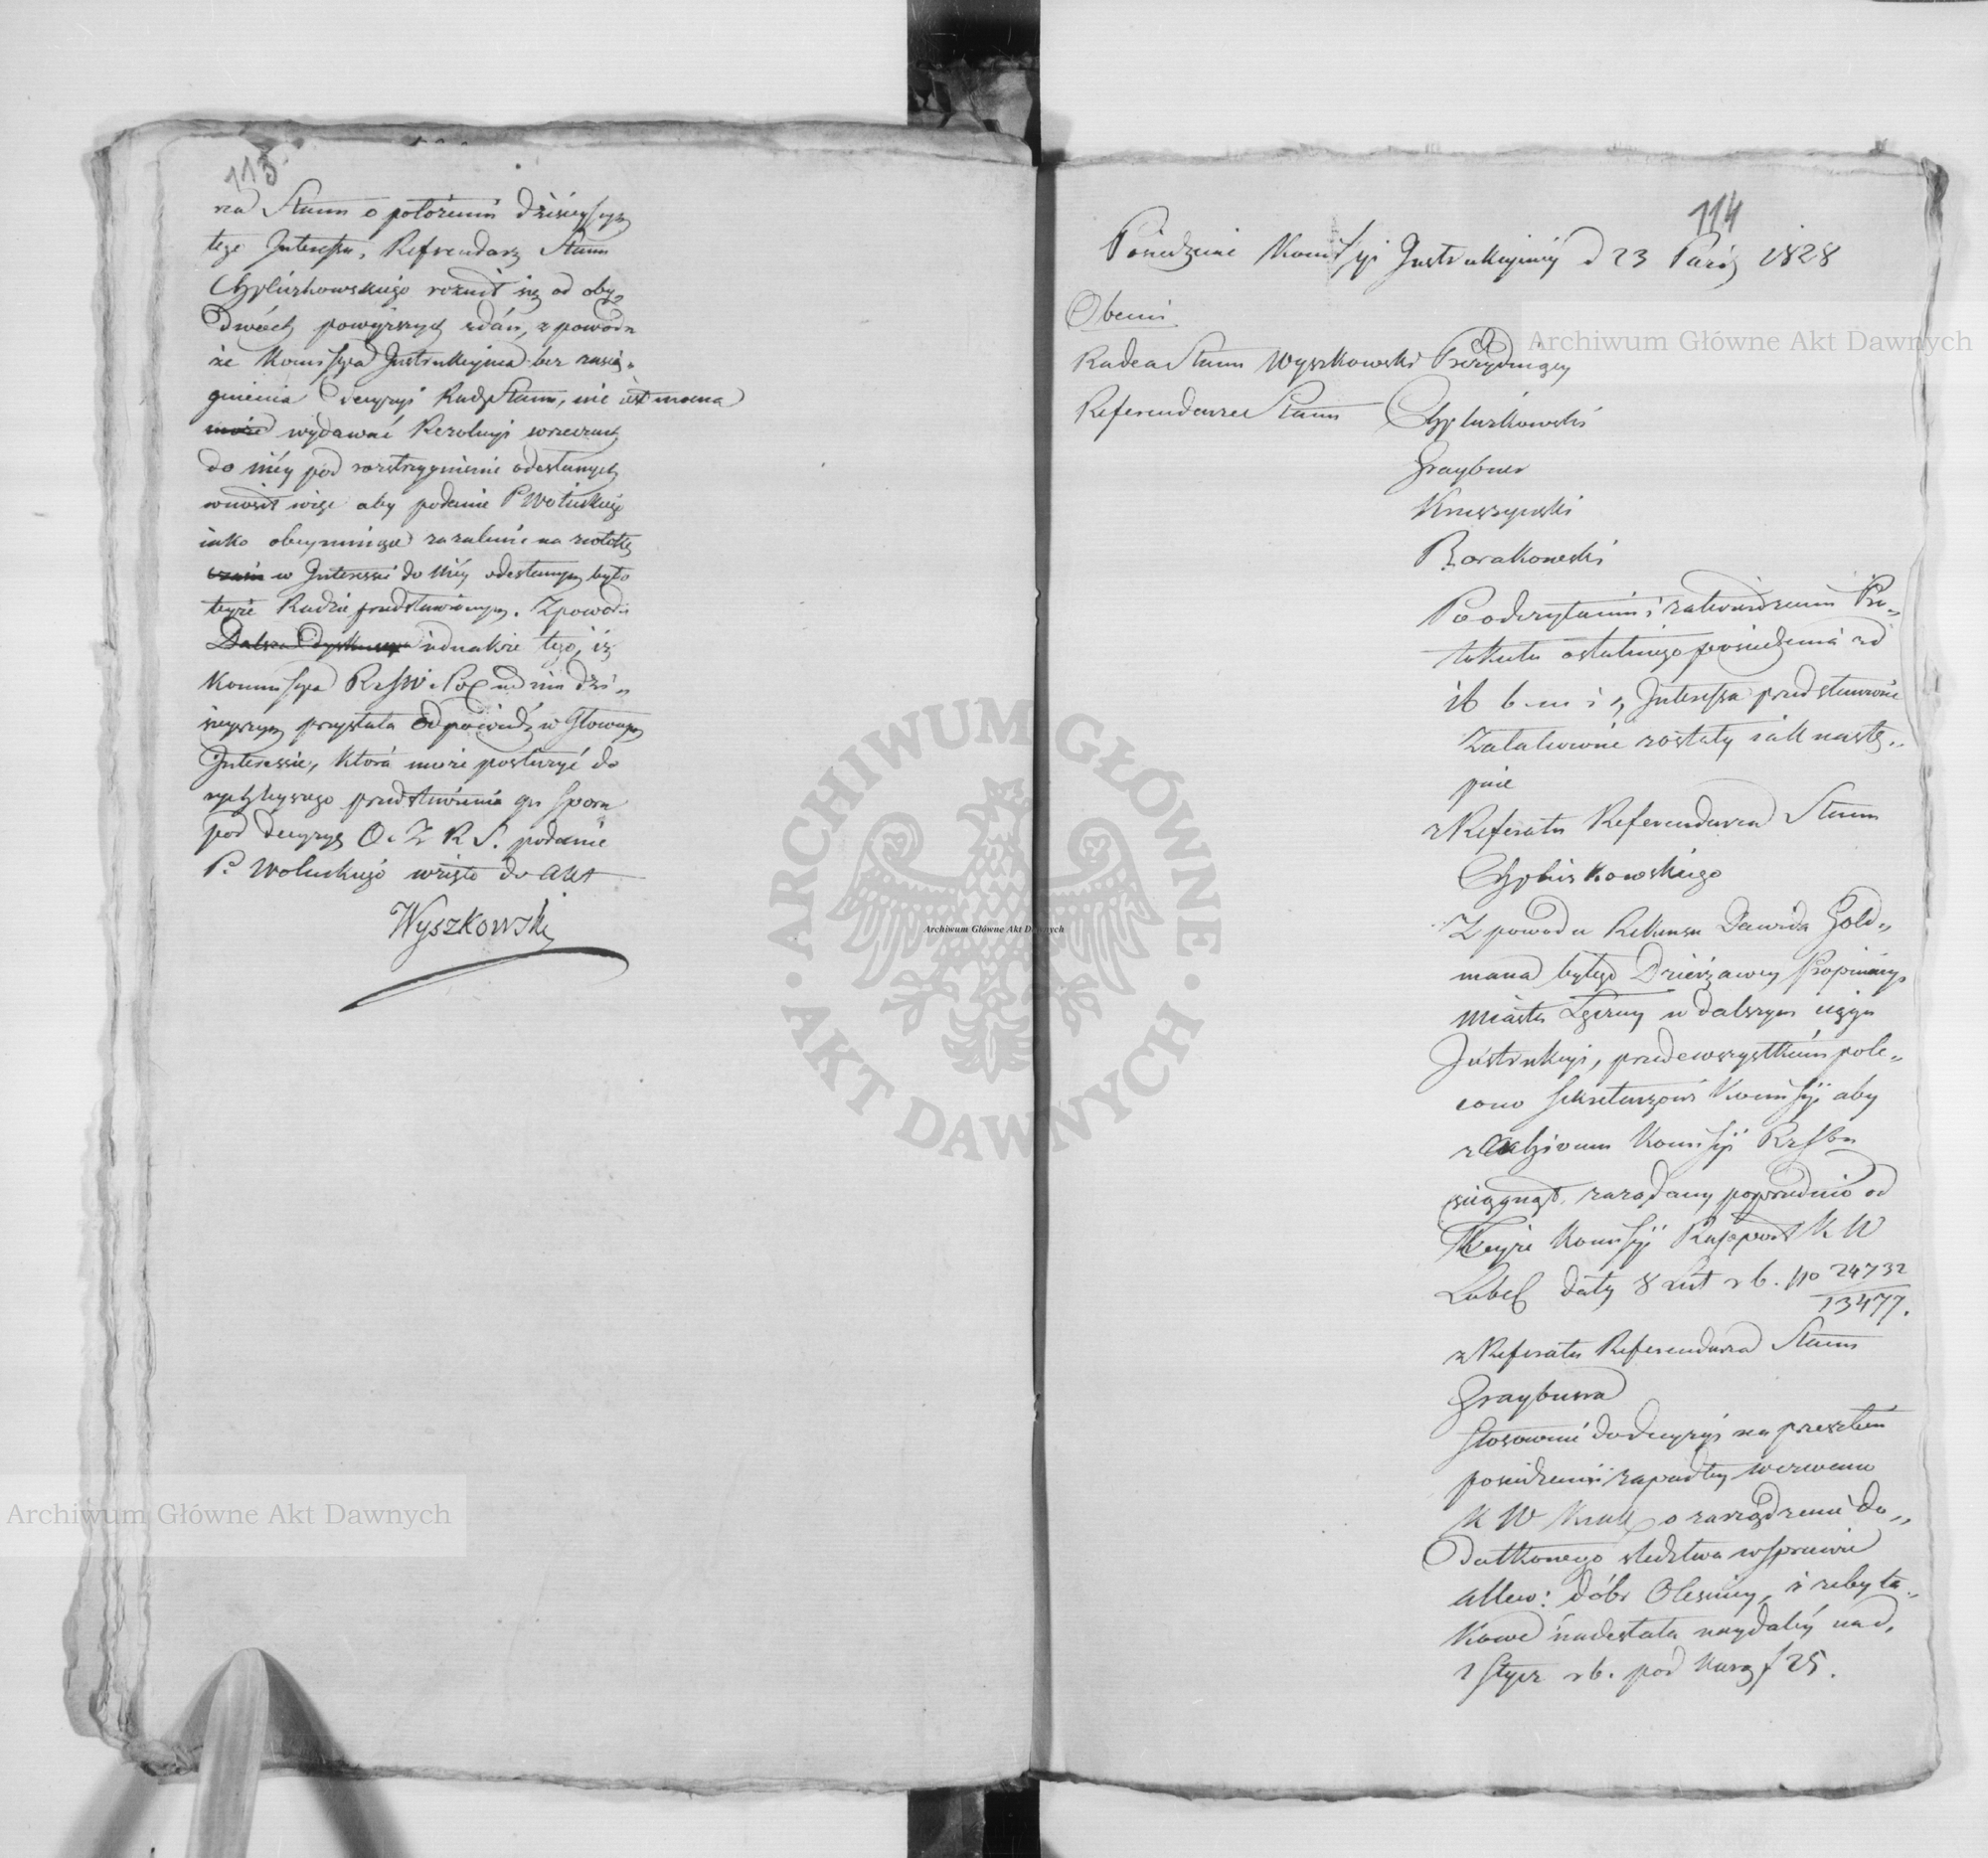 113
na Stanu o położeniu dzisieyszym
tego Interessu, Referendarz Stanu
Chpliszkowskiego różnił się od oby„
dwóch powyższych zdań, z powodu
że Kommissya Instrukcyina bez zasią„
gnienia decyzyi Rady Stanu, nie iest mocna
może wydawać Rezolucyi w rzeczach
do niéy pod rozstrzygnienie odesłanych
wnosił więc aby podanie P. Wolickiego
iako obeymuiące zażalenie na zwłokę
w Interessie do Niéy odesłanym było
teyże Radzie przedstawionym. Z powodu
Dalsza Dyskussya iednakże tego, iż
Kommissya RzSW i Pol na dniu dzi„
sieyszym przysłała odpowiedź w Głównym
Interessie, która może posłużyć do
rychleyszego przedstawienia sporu
pod decyzyę O. Z. R. S. podanie
P. Wolickiego wzięto do Akt
Wyszkowski
114
Posiedzenie Komissyi Instrukcyinéy d 23 Paźdz 1828
Obecni
Radca Stanu Wyszkowski Prezyduiący
Referendarze Stanu
Graybner
Kruszyński
Borakowski
Po odczytaniu i zatwierdzeniu Pro„
tokułu ostatniego posiedzenia z d
16 b. m. i r, Interessa przedstawione
Załatwione zostały iak nastę„
puie
z Referatu Referendarza Stanu
Z powodu Rekursu Dawida Gold„
mana byłego Dzierżawcy Propinacyi
miasta w dalszym ciągu
Instrukcyi, przedewszystkiém pole„
cono Sekretarzowi Komissyi aby
z Archivum Komissyi
sciągnął zażądany poprzednio od
Teyże Komissyi Rapport K W
Lubel daty 8 Lut r b. No 24732
13477.
z Referatu Referendarza Stanu
Graybnera
Stosownie do decyzyi na przeszłém
posiedzeniu zapadłéy wezwano
K W Krak o zarządzenie do„
datkowego śledztwa w sprawie
allew: dóbr Oleśnicy, i żeby ta„
kowe nadesłała naydaléy na d.
1 Stycz r b. pod karą f 25.
Archiwum Główne Akt Dawnych
Archiwum Główne Akt Dawnych
Archiwum Główne Akt Dawnych
ARCHIWUM GŁÓWNE · AKT DAWNYCH ·